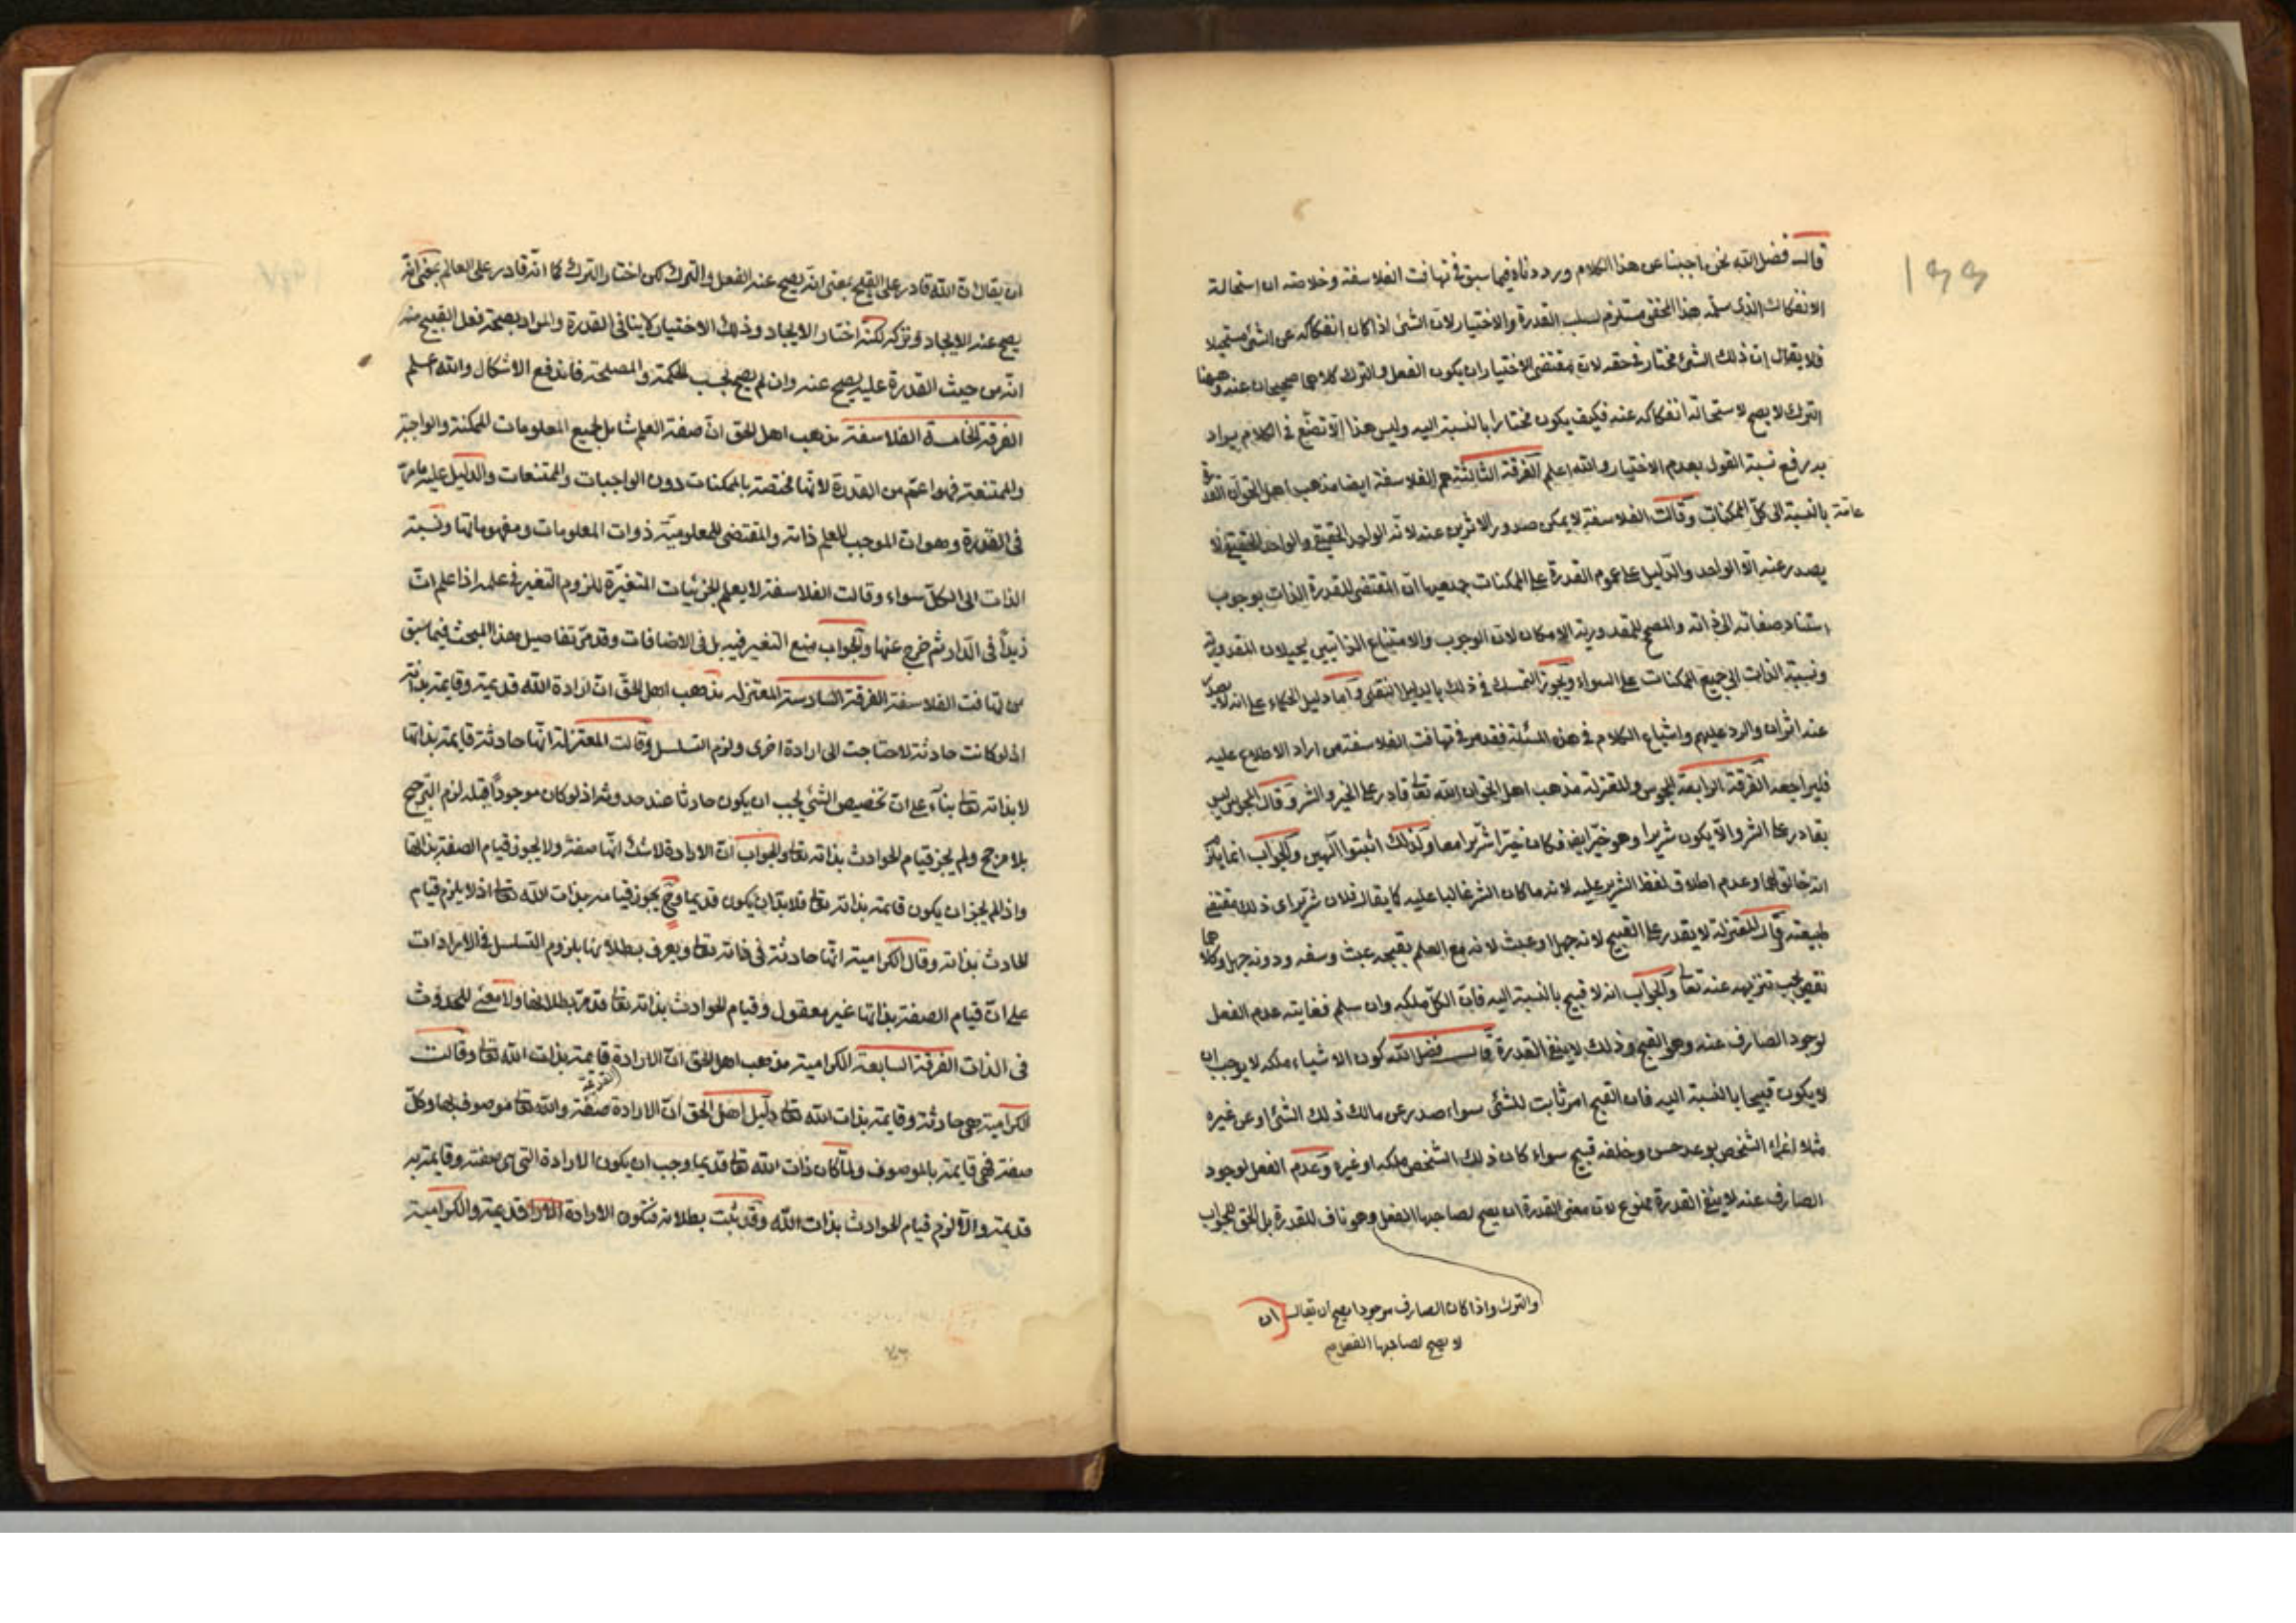 ١٩٩
قال فضل الله نحن اجبنا عن هذا الكلام ورددناه فيما سبق في تهافت الفلاسفة وخلاصته ان استحالة
الانفكاك الذي سلمه هذا المحقق مستلزم لسلب القدرة والاختيار لان الشئ اذا كان انفكاكه عن الشئ مستحيلا
فلا يقال ان ذلك الشئ مختار في حقه لان مقتضى الاختيار ان يكون الفعل والترك كلاهما صحيحان عنه وههنا
الترك لا يصح لاستحالة انفكاكه عنه فكيف يكون مختارا بالنسبة اليه وليس هذا الا تصنع في الكلام يراد
به رفع نسبة القول بعدم الاختيار والله اعلم الفرقة الثالثة هم الفلاسفة ايضا مذهب اهل الحق ان القدرة
عامة بالنسبة الى كل الممكنات وقالت الفلاسفة لا يمكن صدور الاثرين عنه لانه الواحد الحقيقي والواحد الحقيقي لا
يصدر عنه الا الواحد والدليل على عموم القدرة على الممكنات جميعها ان المقتضى للقدرة الذات بوجوب
استناد صفاته الى ذاته والمصحح للمقدورية الامكان لان الوجوب والامتناع الذاتيين يحيلان المقدورية
ونسبة الذات الى جميع الممكنات على السواء ويجوز التمسك في ذلك بالدليل النقلي واما دليل الحكماء على انه لا يصدر
عنه اثران والرد عليهم واشباع الكلام في هذه المسئلة فقد مر في تهافت الفلاسفة من اراد الاطلاع عليه
فليراجعه الفرقة الرابعة المجوس والمعتزلة مذهب اهل الحق ان الله تعالى قادر على الخير والشر وقال المجوس ليس
بقادر على الشر والا يكون شريرا وهو خير ايضا فكان خيرا شريرا معا ولذلك اثبتوا الهين والجواب انما يذكر
انه خالق لهما وعدم اطلاق لفظ الشرير عليه لانه ما كان الشر غالبا عليه كما يقال فلان شرير اى ذلك مقتضى
طبيعته وقال المعتزلة لا يقدر على القبيح لانه جهل او عبث لانه مع العلم بقبحه عبث وسفه ودونه جهل وكلاهما
نقص يجب تنزيهه عنه تعالى والجواب انه لا قبيح بالنسبة اليه فان الكل ملكه وان سلم فغايته عدم الفعل
لوجود الصارف عنه وهو القبح وذلك لا ينفي القدرة قال فضل الله كون الاشياء ملكه لا يوجب ان
لا يكون قبيحا بالنسبة اليه فان القبح امر ثابت للشئ سواء صدر عن مالك ذلك الشئ او عن غيره
مثلا اغراء الشخص بوعد حسن وخلفه قبيح سواء كان ذلك الشخص ملكه او غيره وعدم الفعل لوجود
الصارف عنه لا ينفي القدرة ممنوع لان معنى القدرة ان يصح لصاحبها الفعل وهو ناف للقدرة بل الحق الجواب
والترك واذا كان الصارف موجودا يصح ان يقال ان
لا يصح لصاحبها الفعل م
ان يقال ان الله قادر على القبح بمعنى انه يصح عنه الفعل والترك لكن اختار الترك كما انه قادر على العالم بمعنى انه
يصح عنه الايجاد وتركه لكنه اختار الايجاد وذلك الاختيار لا ينافي القدرة والمراد بصحة فعل القبيح منه
انه من حيث القدرة عليه يصح عنه وان لم يصح بحسب الحكمة والمصلحة فاندفع الاشكال والله اعلم
الفرقة الخامسة الفلاسفة مذهب اهل الحق ان صفة العلم شامل لجميع المعلومات الممكنة والواجبة
والممتنعة فهو اعم من القدرة لانها مختصة بالممكنات دون الواجبات والممتنعات والدليل عليه ما مر
في القدرة وهو ان الموجب للعلم ذاته والمقتضى للمعلومية ذوات المعلومات ومفهوماتها ونسبة
الذات الى الكل سواء وقالت الفلاسفة لا يعلم الجزئيات المتغيرة للزوم التغير في علمه اذا علم ان
زيدا في الدار ثم خرج عنها والجواب منع التغير فيه بل في الاضافات وقد مر تفاصيل هذا المبحث فيما سبق
من تهافت الفلاسفة الفرقة السادسة المعتزلة مذهب اهل الحق ان ارادة الله قديمة وقايمة بذاته
اذ لو كانت حادثة لاحتاجت الى ارادة اخرى ولزم التسلسل وقالت المعتزلة انها حادثة قايمة بذاتها
لا بذاته تعالى بناء على ان تخصيص الشئ يجب ان يكون حادثا عند حدوثه اذ لو كان موجودا قبله لزم الترجيح
بلا مرجح ولم يجز قيام الحوادث بذاته تعالى والجواب ان الارادة لا شك انها صفة ولا يجوز قيام الصفة بذاتها
واذا لم يجز ان يكون قايمة بذاته تعالى فلا بد ان يكون قديما وح يجوز قيامه بذات الله تعالى اذ لا يلزم قيام
الحادث بذاته وقال الكرامية انها حادثة في ذاته تعالى ويعرف بطلانها بلزوم التسلسل في الارادات
على ان قيام الصفة بذاتها غير معقول وقيام الحوادث بذاته تعالى قد مر بطلانها ولا معنى للحدوث
في الذات الفرقة السابعة الكرامية مذهب اهل الحق ان الارادة القديمة قايمة بذات الله تعالى وقالت
الكرامية هي حادثة وقايمة بذات الله تعالى دليل اهل الحق ان الارادة صفة والله تعالى موصوف بها وكل
صفة فهي قايمة بالموصوف ولما كان ذات الله تعالى قديما وجب ان يكون الارادة التي هي صفته وقايمة به
قديمة والا لزم قيام الحوادث بذات الله وقد ثبت بطلانه فتكون الارادة قديمة والكرامية